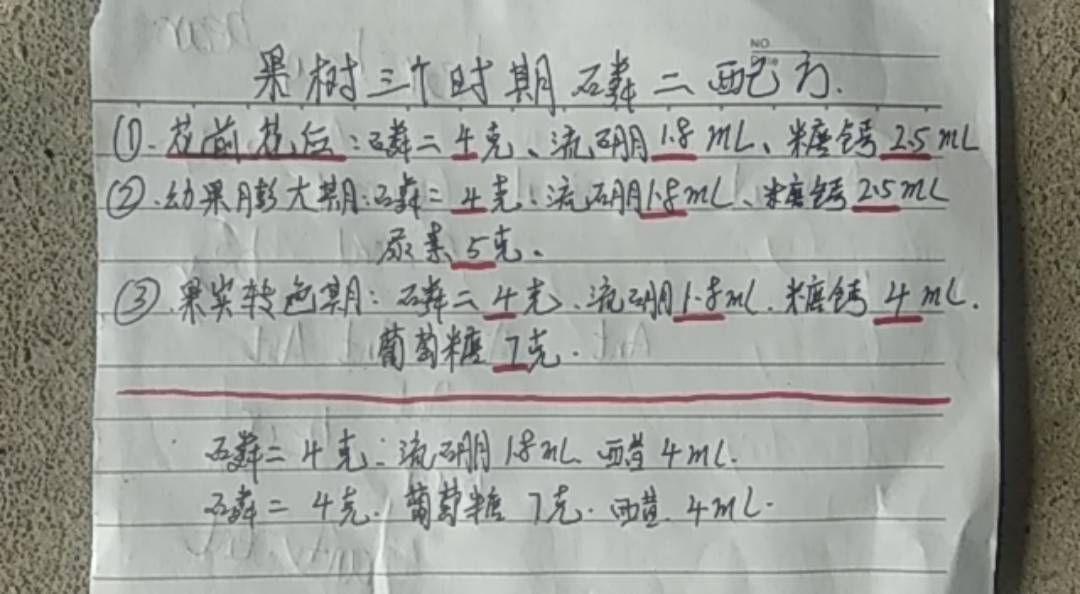 NO.
果树三个时期磷二配方.
①.花前花后:磷二4克、流硼1.8mL、糖钙2.5mL
②.幼果膨大期:磷二4克:流硼1.8mL、糖钙2.5mL
尿素5克、
③.果实转色期:磷二4克、流硼1.8mL.糖钙4mL.
葡萄糖7克.
磷二4克:流硼1.8mL 醋4mL.
磷二4克.葡萄糖7克.醋.4mL.